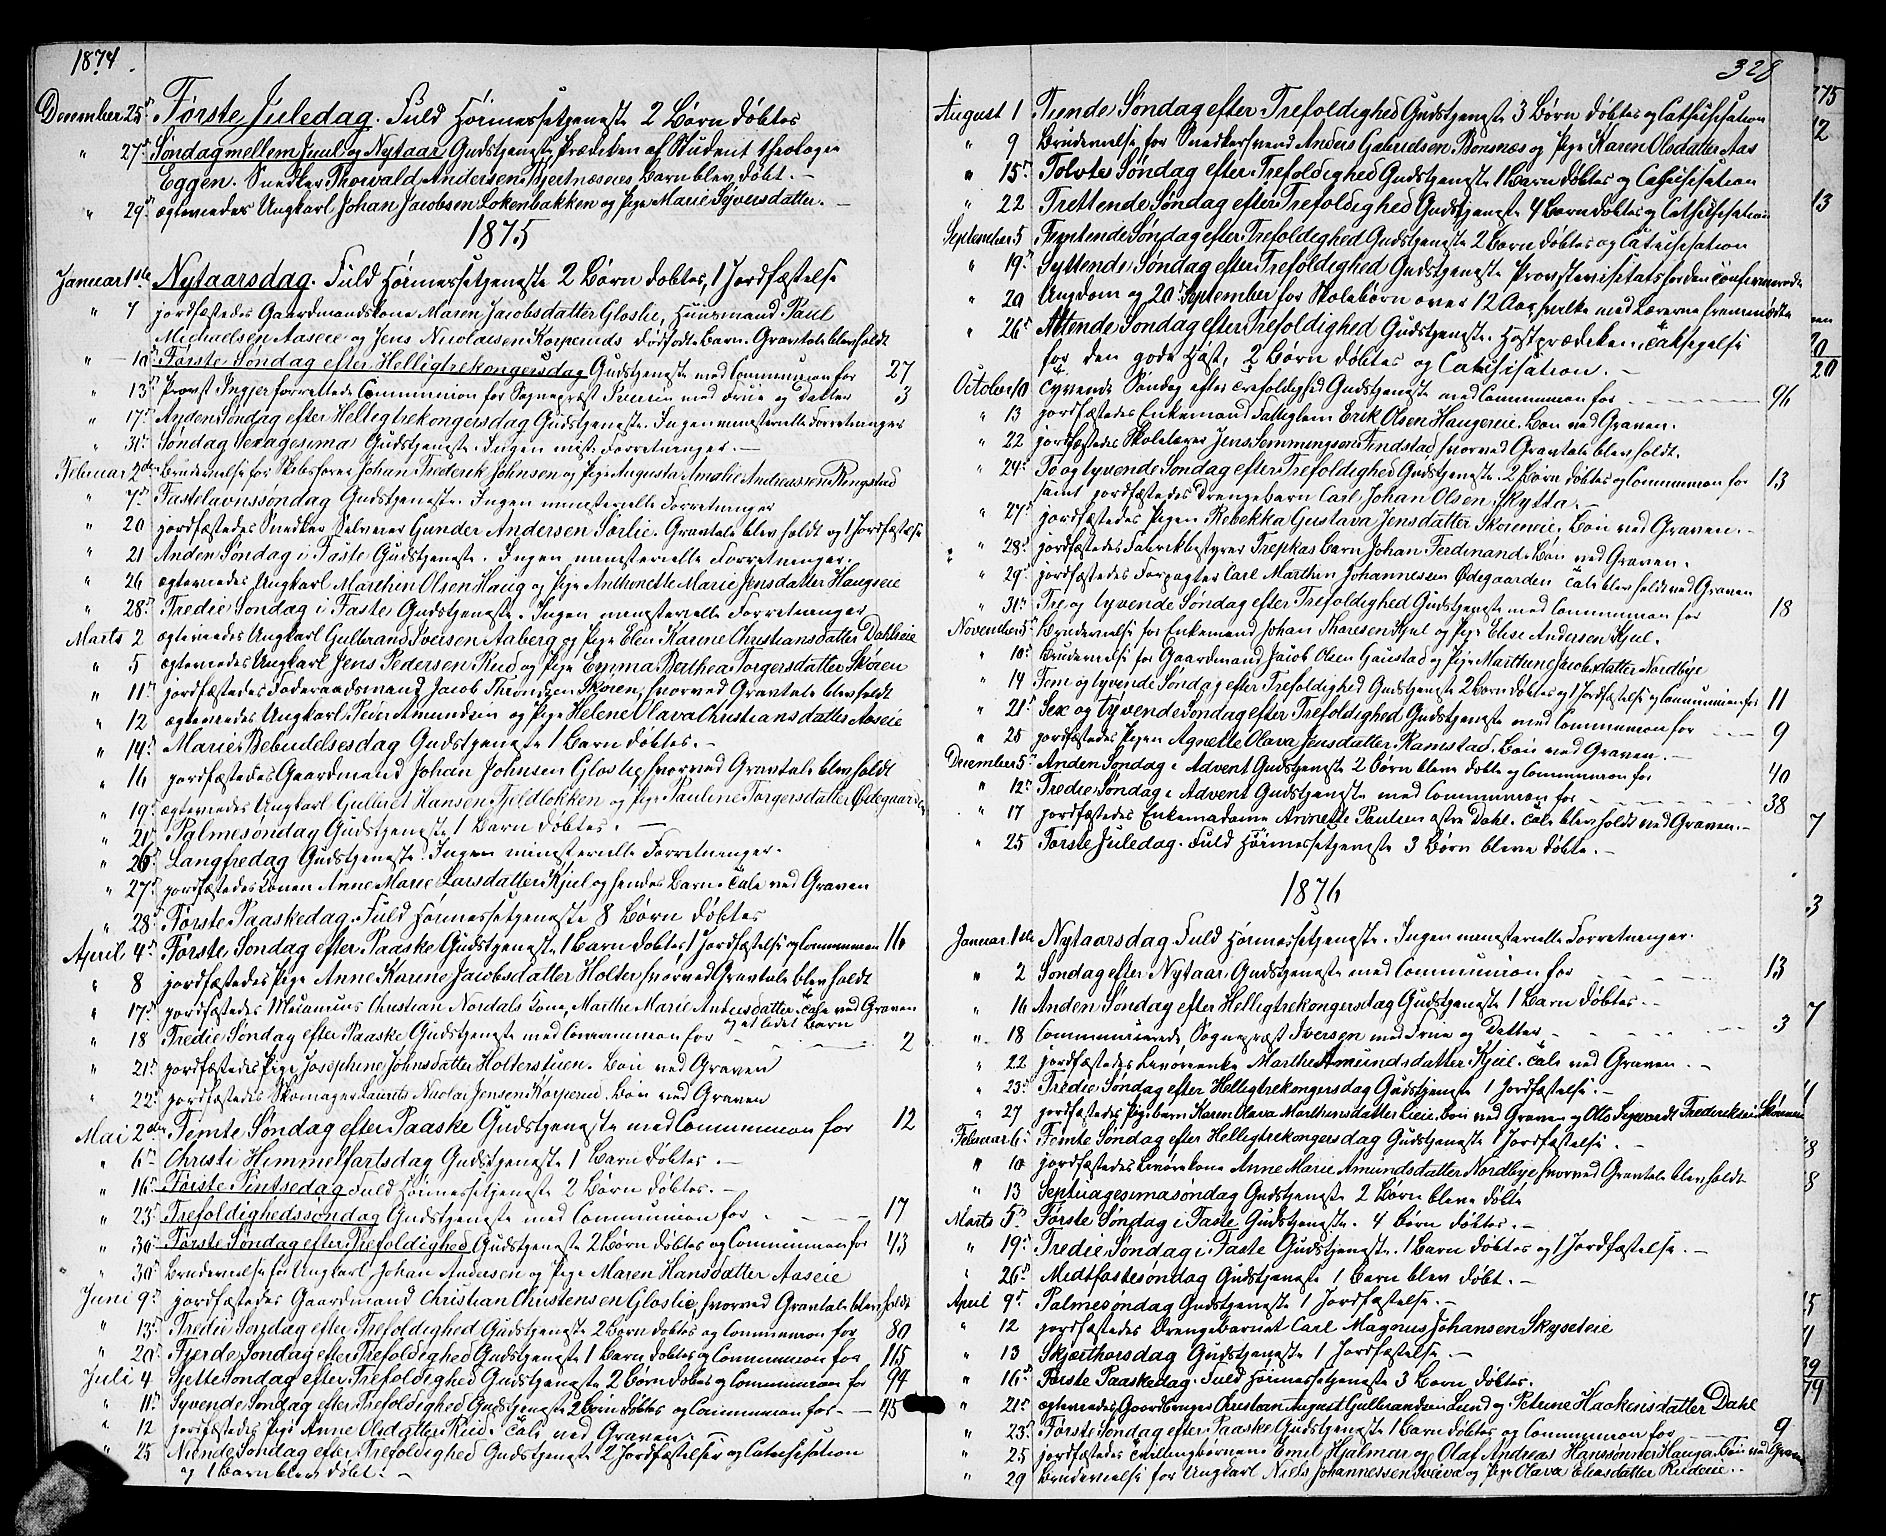 1874
December 25de Første Juledag. Fuld Høimessetjeneste 2 Børn døbtes
" 27de Søndag mellem Juul og Nytaar Gudstjeneste, Prædiken af Student theologie
Eggen. Snedker Thorvald Andersen Bjertnæsies Barn blev døbt. –
" 29de ægteviedes Ungkarl Johan Jacobsen Løkenbakken og Pige Marie Syversdatter. –
1875
Januar 1ste Nytaarsdag. Fuld Høimessetjeneste 2 Børn døbtes, 1 Jordfæstelse
" 7 jordfæstedes Gaardmandskone Maren Jacobsdatter Gloslie, Huusmand Paul
Michaelsen Aaseie og Jens Nicolaisen Korperuds dødfødte Barn. Gravtale blev holdt
" 10de Første Søndag efter Helligtrekongersdag Gudstjeneste med Communion for 27
" 13de Provst Ingier forrettede Communion for Sognepræst Iversen med Frue og Datter 3
" 17de Anden Søndag efter Helligtrekongersdag Gudstjeneste. Ingen ministerielle Forretninger
" 31te Søndag Sexagesima Gudstjeneste. Ingen minist. Forretninger. –
Februar 2den Brudevielse for Skibsfører Johan Frederik Johnsen og Pige Augusta Amalie Andreassen Ringstad
" 7de Fastelavnssøndag Gudstjeneste. Ingen ministerielle Forretninger
" 20 jordfæstedes Snedker Selveier Gunder Andersen Sørlie. Gravtale blev holdt og 1 Jordfæstelse
" 21 Anden Søndag i Faste Gudstjeneste. Ingen ministerielle Forretninger.
" 26 ægteviedes Ungkarl Marthin Olsen Haug og Pige Anthonette Marie Jensdatter Haugseie
" 28de Tredie Søndag i Faste Gudstjeneste. Ingen ministerielle Forretninger
Marts 2 ægteviedes Ungkarl Gulbrand Iversen Aaberg og Pige Elen Karine Christiansdatter Dahleie
" 5 ægteviedes Ungkarl Jens Pedersen Rud og Pige Emma Berthea Torgersdatter Skøien
" 11te jordfæstedes Føderaadsmand Jacob Throndsen Skøien, hvorved Gravtale blev holdt
" 12 ægteviedes Ungkarl Peder Amundsen og Pige Helene Olava Christiansdatter Aaseie
" 14de Mariæ Bebudelsesdag Gudstjeneste 1 Barn døbtes. –
" 16 jordfæstedes Gaardmand Johan Johnsen Gloslie, hvorved Gravtale blev holdt
" 19de ægteviedes Ungkarl Gulbret Hansen Fjeldløkken og Pige Pauline Torgersdatter Ødegaarden
" 21de Palmesøndag Gudstjeneste 1 Barn døbtes. –
" 26de Langfredag Gudstjeneste. Ingen ministerielle Forretninger.
" 27de jordfæstedes Konen Anne Marie Larsdatter Kjul og hendes Barn. Tale ved Graven
" 28de Første Paaskedag. Fuld Høimessetjeneste 8 Børn døbtes
April 4de Første Søndag efter Paaske Gudstjeneste 1 Barn døbtes, 1 Jordfæstelse og Communion 16
" 8 jordfæstedes Pige Anne Karine Jacobsdatter Holter, hvorved Gravtale blev holdt
" 17de jordfæstedes Christian Nordals Kone, Marthe Marie Andersdatter. Tale ved Graven
og et lidet Barn
" 18 Tredie Søndag efter Paaske Gudstjeneste med Communion for – – 2
" 21de jordfæstedes Pige Josephine Johnsdatter Holterstuen. Bøn ved Graven
" 22de jordfæstedes Skomager Laurits Nicolai Jensen Korperud. Bøn ved Graven
Mai 2den Femte Søndag efter Paaske Gudstjeneste med Communion for 12
" 6te Christi Himmelfartsdag Gudstjeneste 1 Barn døbtes. –
" 16de Første Pintsedag Fuld Høimessetjeneste 2 Børn døbtes. –
" 23de Trefoldighedssøndag Gudstjeneste med Communion for – – – 17
" 30te Første Søndag efter Trefoldighed Gudstjeneste 2 Børn døbtes og Communion for 43
" 30te Brudevielse for Ungkarl Johan Andersen og Pige Maren Hansdatter Aaseie
Juni 9de jordfæstedes Gaardmand Christian Christensen Gloslie, hvorved Gravtale blev holdt
" 13de Tredie Søndag efter Trefoldighed Gudstjeneste 2 Børn døbtes og Communion for 80
" 20de Fjerde Søndag efter Trefoldighed Gudstjeneste 1 Barn døbtes og Communion for 115
Juli 4 Sjette Søndag efter Trefoldighed Gudstjeneste 2 Børn døbtes og Communion for 94
" 11te Syvende Søndag efter Trefoldighed Gudstjeneste 2 Børn døbtes og Communion for – 45
" 12 jordfæstedes Pige Anne Olsdatter Rud. Tale ved Graven. –
" 25 Niende Søndag efter Trefoldighed Gudstjeneste 2 Jordfæstelser og Catechisation
og 1 Barn blev døbt. –
328
August 1 Tiende Søndag efter Trefoldighed Gudstjeneste 3 Børn døbtes og Catechisation
" 9 Brudevielse for Snedkersvend Anders Gabrielsen Bonsnes og Pige Karen Olsdatter Aas
" 15de Tolvte Søndag efter Trefoldighed Gudstjeneste 1 Barn døbtes og Catechisation
" 22 Trettende Søndag efter Trefoldighed Gudstjeneste 4 Børn døbtes og Catechisation
September 5 Femtende Søndag efter Trefoldighed Gudstjeneste 2 Børn døbtes og Catechisation
" 19de Syttende Søndag efter Trefoldighed Gudstjeneste Provstevisitats for den confirmerede
" 20 Ungdom og 20de September for Skolebørn over 12 Aar, hvilke med Lærerne fremmødte
" 26de Attende Søndag efter Trefoldighed Gudstjeneste. Høstprædiken, Taksigelse
for den gode Høst, 2 Børn døbtes og Catechisation. –
October 10 Tyvende Søndag efter Trefoldighed Gudstjeneste med Communion for – – – 96
" 13 jordfæstedes Enkemand Fattiglem Erik Olsen Haugereie. Bøn ved Graven.
" 22 jordfæstedes Skolelærer Jens Semmingsen Findstad, hvorved Gravtale blev holdt.
" 24de To og tyvende Søndag efter Trefoldighed Gudstjeneste. 2 Børn døbtes og Communion for 13
samt jordfæstedes Drengebarn Carl Johan Olsen Skytta.
" 27de jordfæstedes Pigen Rebekka Gustava Jensdatter Skøieneie. Bøn ved Graven. –
" 28de jordfæstedes Fabrikbestyrer Trepkas Barn Johan Ferdinand. Bøn ved Graven.
" 29de jordfæstedes Forpagter Carl Marthin Johannessen Ødegaarden Tale blev holdt ved Graven
" 31te Tre og tyvende Søndag efter Trefoldighed Gudstjeneste med Communion for 18
November 5te Brudevielse for Enkemand Johan Thoresen Kjul og Pige Elise Andersen Kjul.
" 10de Brudevielse for Gaardmand Jacob Olsen Gaustad og Pige Marthine Jacobsdatter Nordbye
" 14 Fem og tyvende Søndag efter Trefoldighed Gudstjeneste 2 Børn døbtes og 1 Jordfæstelse og Communion for 11
" 21de Sex og tyvende Søndag efter Trefoldighed Gudstjeneste med Communion for – – 9
" 25 jordfæstedes Pigen Agnette Olava Jensdatter Ramstad. Bøn ved Graven. –
December 5te Anden Søndag i Advent Gudstjeneste 2 Børn bleve døbte og Communion for 40
" 12te Tredie Søndag i Advent Gudstjeneste med Communion for – – – 38
" 17 jordfæstedes Enkemadame Annette Paulsen østre Dahl. Tale blev holdt ved Graven. –
" 25 Første Juledag. Fuld Høimessetjeneste 3 Børn bleve døbte. –
1876
Januar 1ste Nytaarsdag Fuld Høimessetjeneste. Ingen ministerielle Forretninger.
" 2 Søndag efter Nytaar Gudstjeneste med Communion for – – – 13
" 16 Anden Søndag efter Helligtrekongersdag Gudstjeneste 1 Barn døbtes. –
" 18 Communicerede Sognepræst Iversen med Frue og Datter – – – 3
" 22 jordfæstedes Marthe Amundsdatter Kjul. Tale ved Graven. –
" 23de Tredie Søndag efter Helligtrekongersdag Gudstjeneste 1 Jordfæstelse. –
" 27 jordfæstedes Pigebarn Karen Olava Marthinsdatter Lieie. Bøn ved Graven og Ols Segvardt Frederiksen
Februar 6te Femte Søndag efter Helligtrekongersdag Gudstjeneste 1 Jordfæstelse. –
" 10 jordfæstedes Anne Marie Amundsdatter Nordbye, hvorved Gravtale blev holdt
" 13 Septuagesimasøndag Gudstjeneste 2 Børn bleve døbte
Marts 5te Første Søndag i Faste Gudstjeneste. 4 Børn døbtes. –
" 19de Tredie Søndag i Faste Gudstjeneste. 1 Barn døbtes og 1 Jordfæstelse. –
" 26de Midtfastesøndag Gudstjeneste 1 Barn blev døbt. –
April 9de Palmesøndag Gudstjeneste 1 Jordfæstelse. –
" 12 jordfæstedes Drengebarnet Carl Magnus Johansen Skyseteie
" 13 Skjærthorsdag Gudstjeneste 1 Jordfæstelse. –
" 16de Første Paaskedag. Fuld Høimessetjeneste 3 Børn døbtes.
" 21de ægteviedes Gaardbruger Christian August Gulbrandsen Lund og Petrine Haakensdatter Dahl
" 23de Første Søndag efter Paaske Gudstjeneste 1 Barn døbtes og Communion for – – 9
" 25 jordfæstedes Tvillingbørnene Emil Hjalmar og Olaf Andreas Hanssønner Hauga. Bøn ved Graven
" 29 Brudevielse for Ungkarl Niels Johannessen og Pige Olava Eliasdatter Rudeie. –